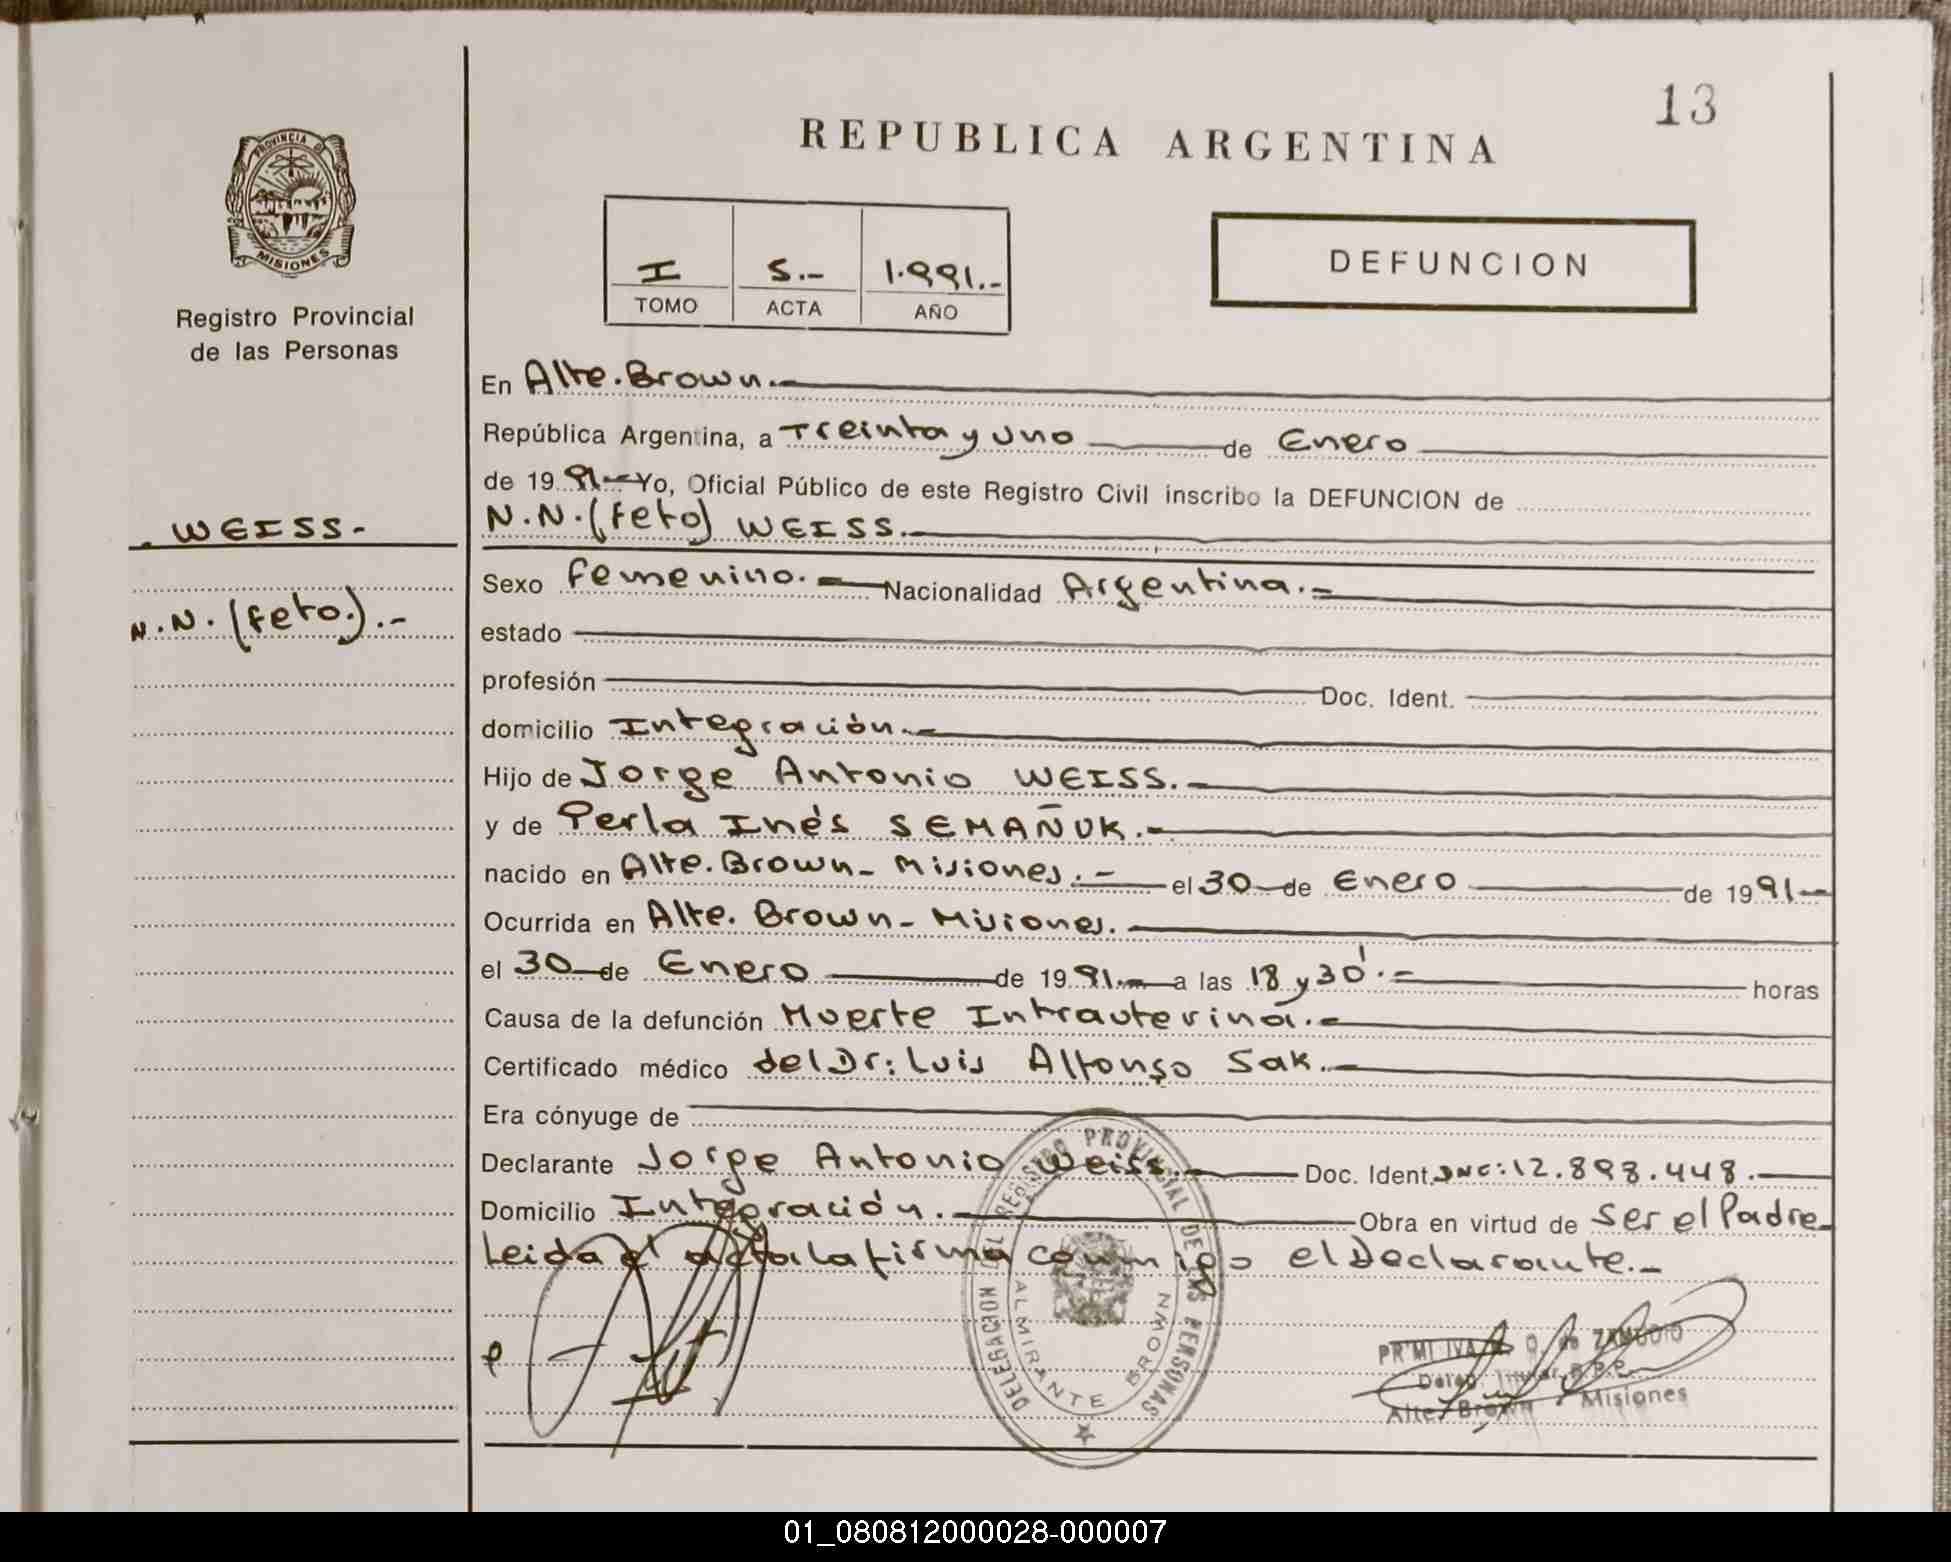 13
REPUBLICA ARGENTINA
PROVINCIA D
MISIONES
Registro Provincial
de las Personas
I 5.- 1.991.-
TOMO ACTA AÑO
DEFUNCION
En Alte. Brown.-
República Argentina, a Treinta y uno de Enero
de 1991.- Yo, Oficial Público de este Registro Civil inscribo la DEFUNCION de
N.N. (feto) WEISS.-
WEISS.-
N.N. (feto.).-
Sexo Femenino.- Nacionalidad Argentina.-
estado
profesión Doc. Ident.
domicilio Integración.-
Hijo de Jorge Antonio WEISS.-
y de Perla Inés SEMAÑUK.-
nacido en Alte. Brown- Misiones.- el 30 de Enero de 1991.-
Ocurrida en Alte. Brown- Misiones.-
el 30 de Enero de 1991.- a las 18 y 30'.- horas
Causa de la defunción Muerte Intrauterina.-
Certificado médico del Dr: Luis Alfonso Sak.-
Era cónyuge de
Declarante Jorge Antonio Weiss.- Doc. Ident. DNI: 12.898.448.-
Domicilio Integración.- Obra en virtud de ser el Padre
Leida el acta la firma conmigo el Declarante.-
DELEGACION DEL REGISTRO PROVINCIAL DE LAS PERSONAS
ALMIRANTE BROWN
ZAMUDIO
Alte. Brown Misiones
01_080812000028-000007